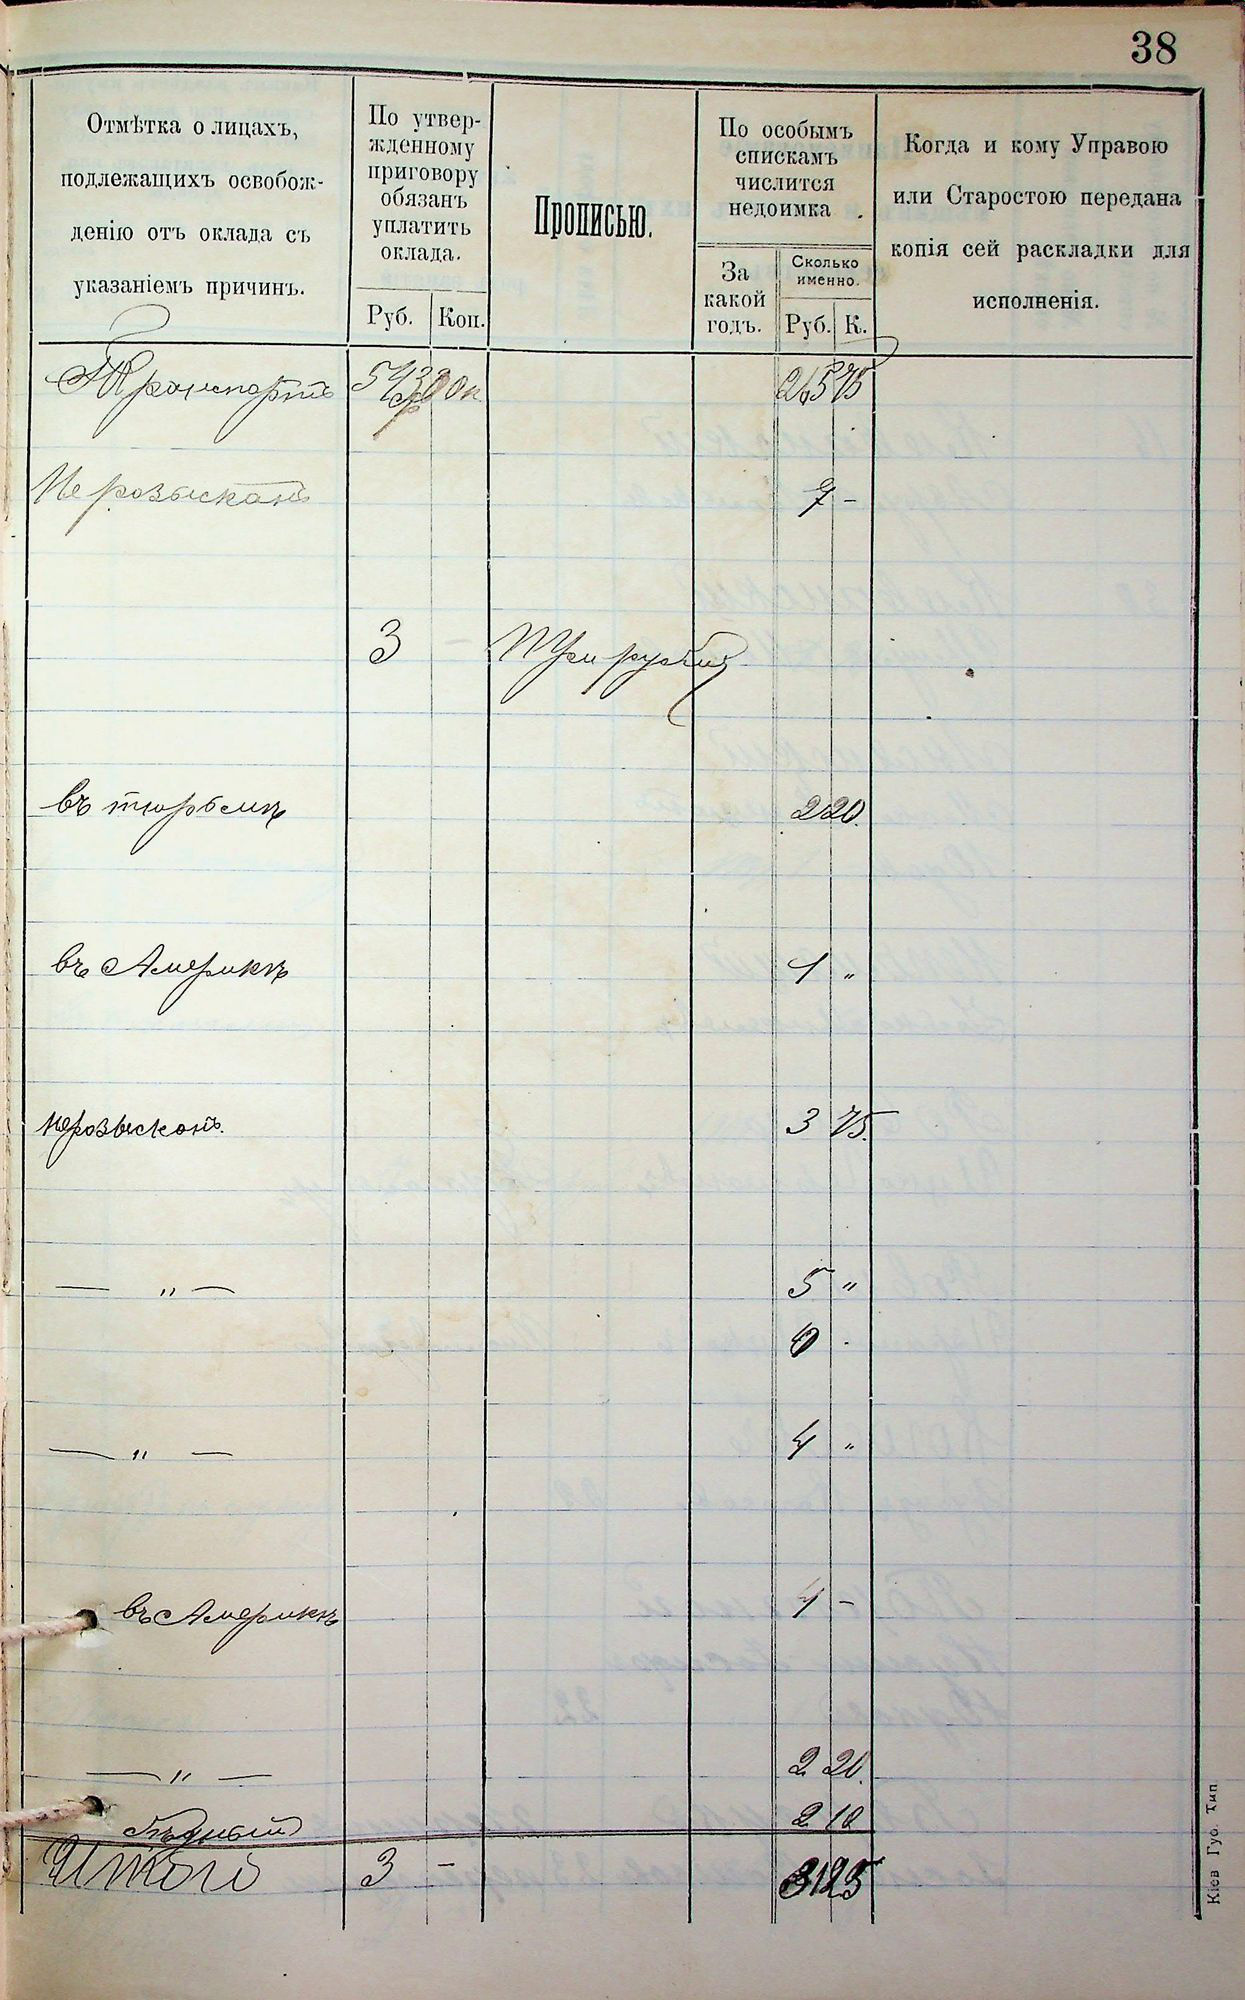 38
Отмѣтка о лицахъ,
подлежащихъ освобож-
денію отъ оклада съ
указаніемъ причинъ.
По утвер-
жденному
приговору
обязанъ
уплатить
оклада.
Руб. Коп.
Прописью.
По особымъ
спискамъ
числится
недоимка
За
какой
годъ.
Сколько
именно.
Руб. К.
Когда и кому Управою
или Старостою передана
копія сей раскладки для
исполненія.
Транспортъ 265 75
Не розысканъ 7 –
3 – Три рубли
въ тюрьмѣ 2 20.
въ Америкѣ 1 „
Не розысканъ. 3 75.
— „ — 5 „
— „ — 4 „
въ Америкѣ 4 –
— „ — 2 20.
бѣдный 2 10
Итого 3 – 31 25
Кіев Губ. Тип